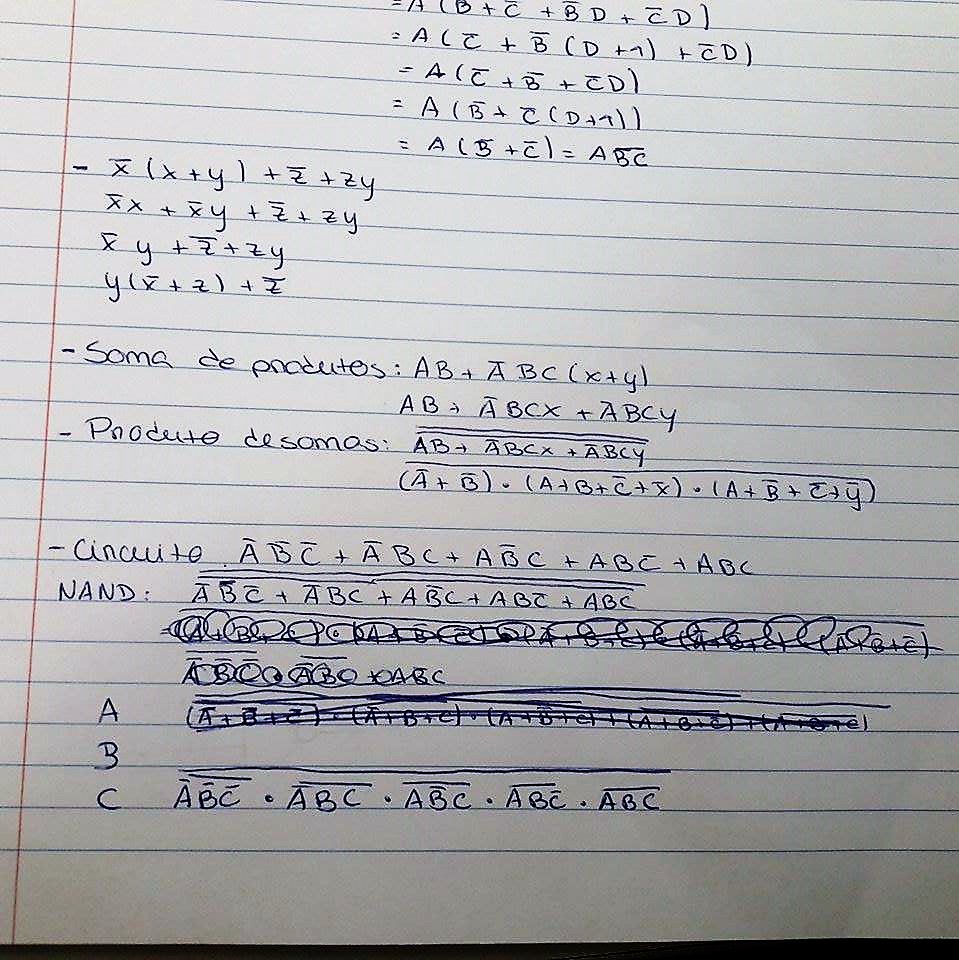 = A ( B + C̅ + B̅ D + C̅ D )
= A ( C̅ + B̅ ( D + 1 ) + C̅ D )
= A ( C̅ + B̅ + C̅ D )
= A ( B̅ + C̅ ( D + 1 ) )
= A ( B̅ + C̅ ) = A B̅C̅
- x̅ ( x + y ) + z̅ + zy
x̅x + x̅y + z̅ + zy
x̅ y + z̅ + zy
y ( x̅ + z ) + z̅
- Soma de produtos: AB + A̅ BC ( x + y )
AB + A̅ BCX + A̅BCy
- Produto de somas: A̅B̅ + A̅BCx + A̅BCy
( A̅ + B̅ ) . ( A + B̅ + C̅ + x̅ ) . ( A + B̅ + C̅ + y̅ )
- Circuito A̅ B̅ C̅ + A̅ B C + A B̅ C + A B C̅ + A B C
NAND: A̅ B̅ C̅ + A̅ B C + A B̅ C + A B C̅ + A B C
A
B
C A̅ B̅ C̅ . A̅ B C . A B̅ C . A B C̅ . A B C